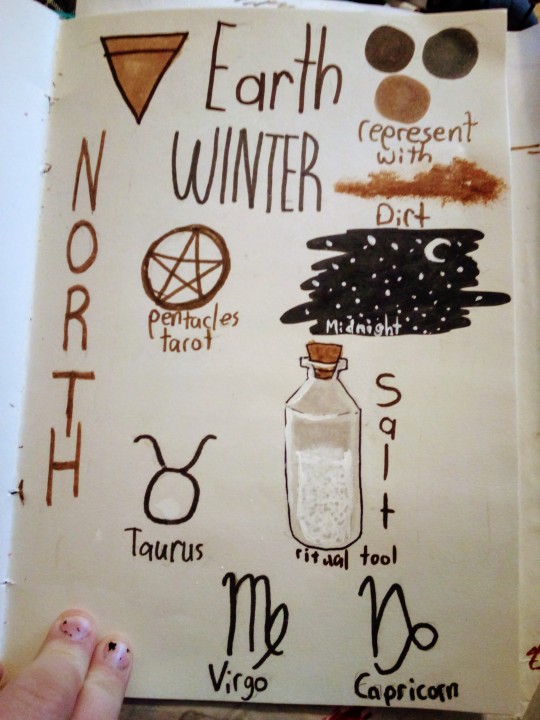 Earth
WINTER
NORTH
represent
with
Dirt
pentacles
tarot
Midnight
Salt
ritual tool
Taurus
Virgo
Capricorn